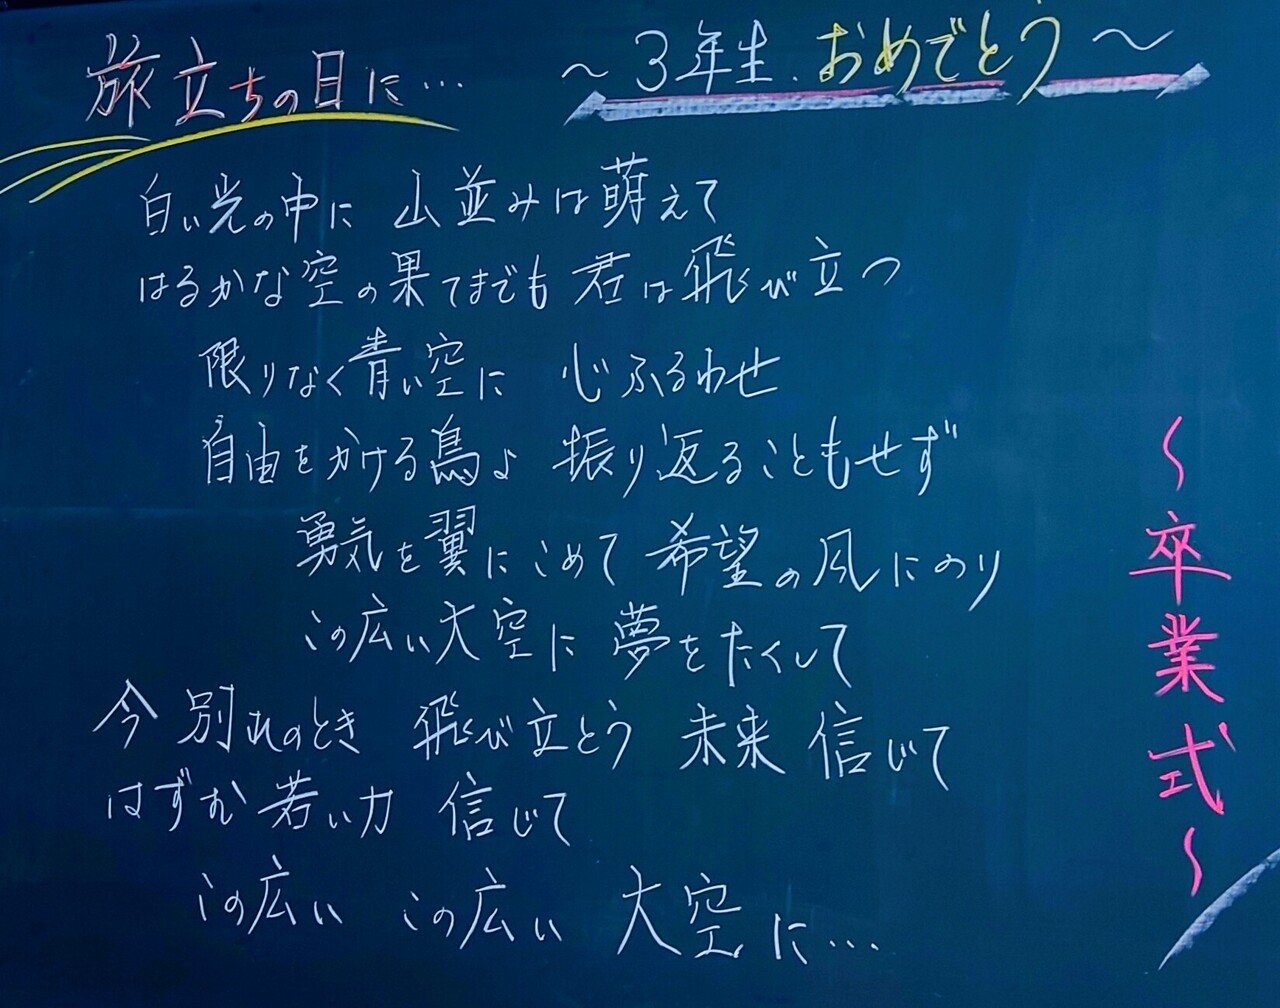 旅立ちの日に…
～3年生.おめでとう～
白い光の中に 山並みは萌えて
はるかな空の果てまでも 君は飛び立つ
限りなく青い空に 心ふるわせ
自由をかける鳥よ 振り返ることもせず
勇気を翼にこめて 希望の風にのり
この広い大空に 夢をたくして
今 別れのとき 飛び立とう 未来 信じて
はずむ 若い力 信じて
この広い この広い 大空に…
～卒業式～